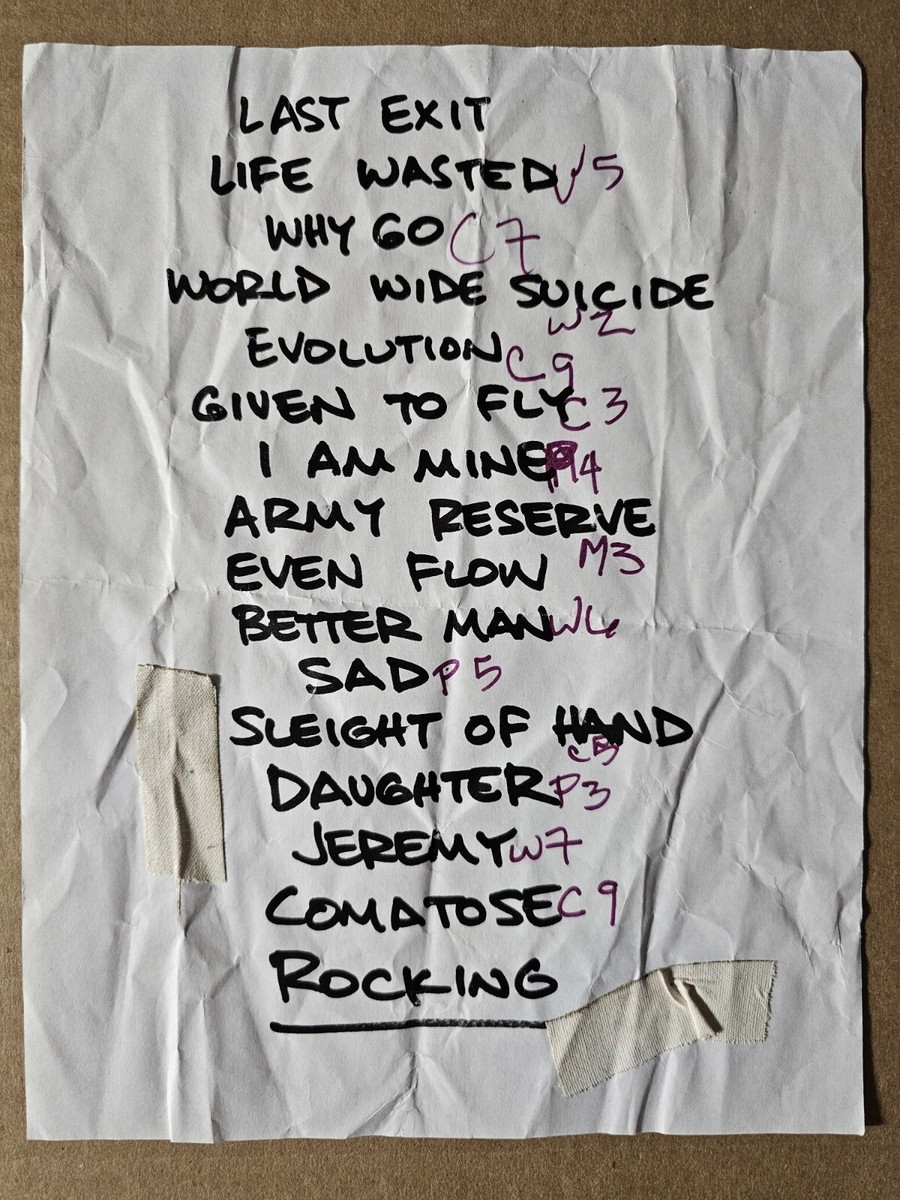 LAST EXIT
LIFE WASTED W5
WHY GO C7
WORLD WIDE SUICIDE
W2
EVOLUTION C9
GIVEN TO FLY C3
I AM MINE M4
ARMY RESERVE
EVEN FLOW M3
BETTER MAN W6
SAD P5
SLEIGHT OF HAND
C5
DAUGHTER P3
JEREMY W7
COMATOSE C9
ROCKING